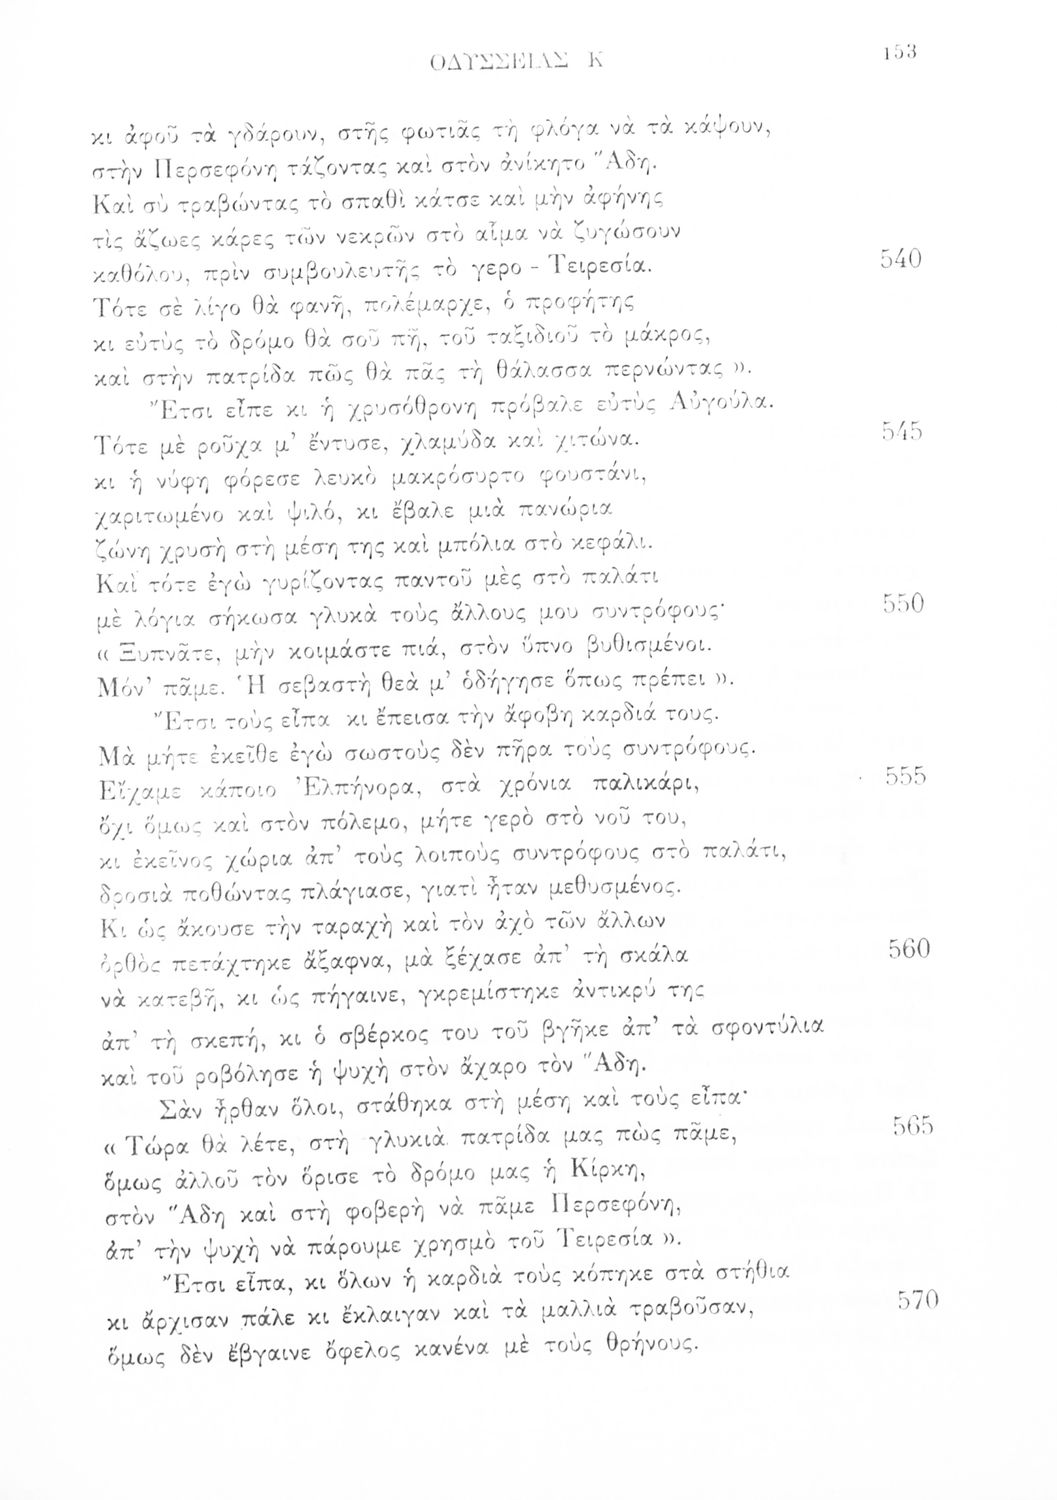 ΟΔΥΣΣΕΙΑΣ Κ 153
κι ἀφοῦ τὰ γδάρουν, στῆς φωτιᾶς τὴ φλόγα νὰ τὰ κάψουν,
στὴν Περσεφόνη τάζοντας καὶ στὸν ἀνίκητο Ἅδη.
Καὶ σὺ τραβώντας τὸ σπαθὶ κάτσε καὶ μὴν ἀφήνης
τὶς ἄζωες κάρες τῶν νεκρῶν στὸ αἷμα νὰ ζυγώσουν
καθόλου, πρὶν συμβουλευτῆς τὸ γερο - Τειρεσία. 540
Τότε σὲ λίγο θὰ φανῆ, πολέμαρχε, ὁ προφήτης
κι εὐτὺς τὸ δρόμο θὰ σοῦ πῆ, τοῦ ταξιδιοῦ τὸ μάκρος,
καὶ στὴν πατρίδα πῶς θὰ πᾶς τὴ θάλασσα περνώντας ».
Ἔτσι εἶπε κι ἡ χρυσόθρονη πρόβαλε εὐτὺς Αὐγούλα.
Τότε μὲ ροῦχα μ' ἔντυσε, χλαμύδα καὶ χιτώνα. 545
κι ἡ νύφη φόρεσε λευκὸ μακρόσυρτο φουστάνι,
χαριτωμένο καὶ ψιλό, κι ἔβαλε μιὰ πανώρια
ζώνη χρυσὴ στὴ μέση της καὶ μπόλια στὸ κεφάλι.
Καὶ τότε ἐγὼ γυρίζοντας παντοῦ μὲς στὸ παλάτι
μὲ λόγια σήκωσα γλυκὰ τοὺς ἄλλους μου συντρόφους· 550
« Ξυπνᾶτε, μὴν κοιμάστε πιά, στὸν ὕπνο βυθισμένοι.
Μόν' πᾶμε. Ἡ σεβαστὴ θεὰ μ' ὁδήγησε ὅπως πρέπει ».
Ἔτσι τοὺς εἶπα κι ἔπεισα τὴν ἄφοβη καρδιά τους.
Μὰ μήτε ἐκεῖθε ἐγὼ σωστοὺς δὲν πῆρα τοὺς συντρόφους.
Εἴχαμε κάποιο Ἐλπήνορα, στὰ χρόνια παλικάρι, 555
ὄχι ὅμως καὶ στὸν πόλεμο, μήτε γερὸ στὸ νοῦ του,
κι ἐκεῖνος χώρια ἀπ' τοὺς λοιποὺς συντρόφους στὸ παλάτι,
δροσιὰ ποθώντας πλάγιασε, γιατὶ ἦταν μεθυσμένος.
Κι ὡς ἄκουσε τὴν ταραχὴ καὶ τὸν ἀχὸ τῶν ἄλλων
ὀρθὸς πετάχτηκε ἄξαφνα, μὰ ξέχασε ἀπ' τὴ σκάλα 560
νὰ κατεβῆ, κι ὡς πήγαινε, γκρεμίστηκε ἀντικρύ της
ἀπ' τὴ σκεπή, κι ὁ σβέρκος του τοῦ βγῆκε ἀπ' τὰ σφοντύλια
καὶ τοῦ ροβόλησε ἡ ψυχὴ στὸν ἄχαρο τὸν Ἅδη.
Σὰν ἦρθαν ὅλοι, στάθηκα στὴ μέση καὶ τοὺς εἶπα·
« Τώρα θὰ λέτε, στὴ γλυκιὰ πατρίδα μας πὼς πᾶμε, 565
ὅμως ἀλλοῦ τὸν ὅρισε τὸ δρόμο μας ἡ Κίρκη,
στὸν Ἅδη καὶ στὴ φοβερὴ νὰ πᾶμε Περσεφόνη,
ἀπ' τὴν ψυχὴ νὰ πάρουμε χρησμὸ τοῦ Τειρεσία ».
Ἔτσι εἶπα, κι ὅλων ἡ καρδιὰ τοὺς κόπηκε στὰ στήθια
κι ἄρχισαν πάλε κι ἔκλαιγαν καὶ τὰ μαλλιὰ τραβοῦσαν, 570
ὅμως δὲν ἔβγαινε ὄφελος κανένα μὲ τοὺς θρήνους.